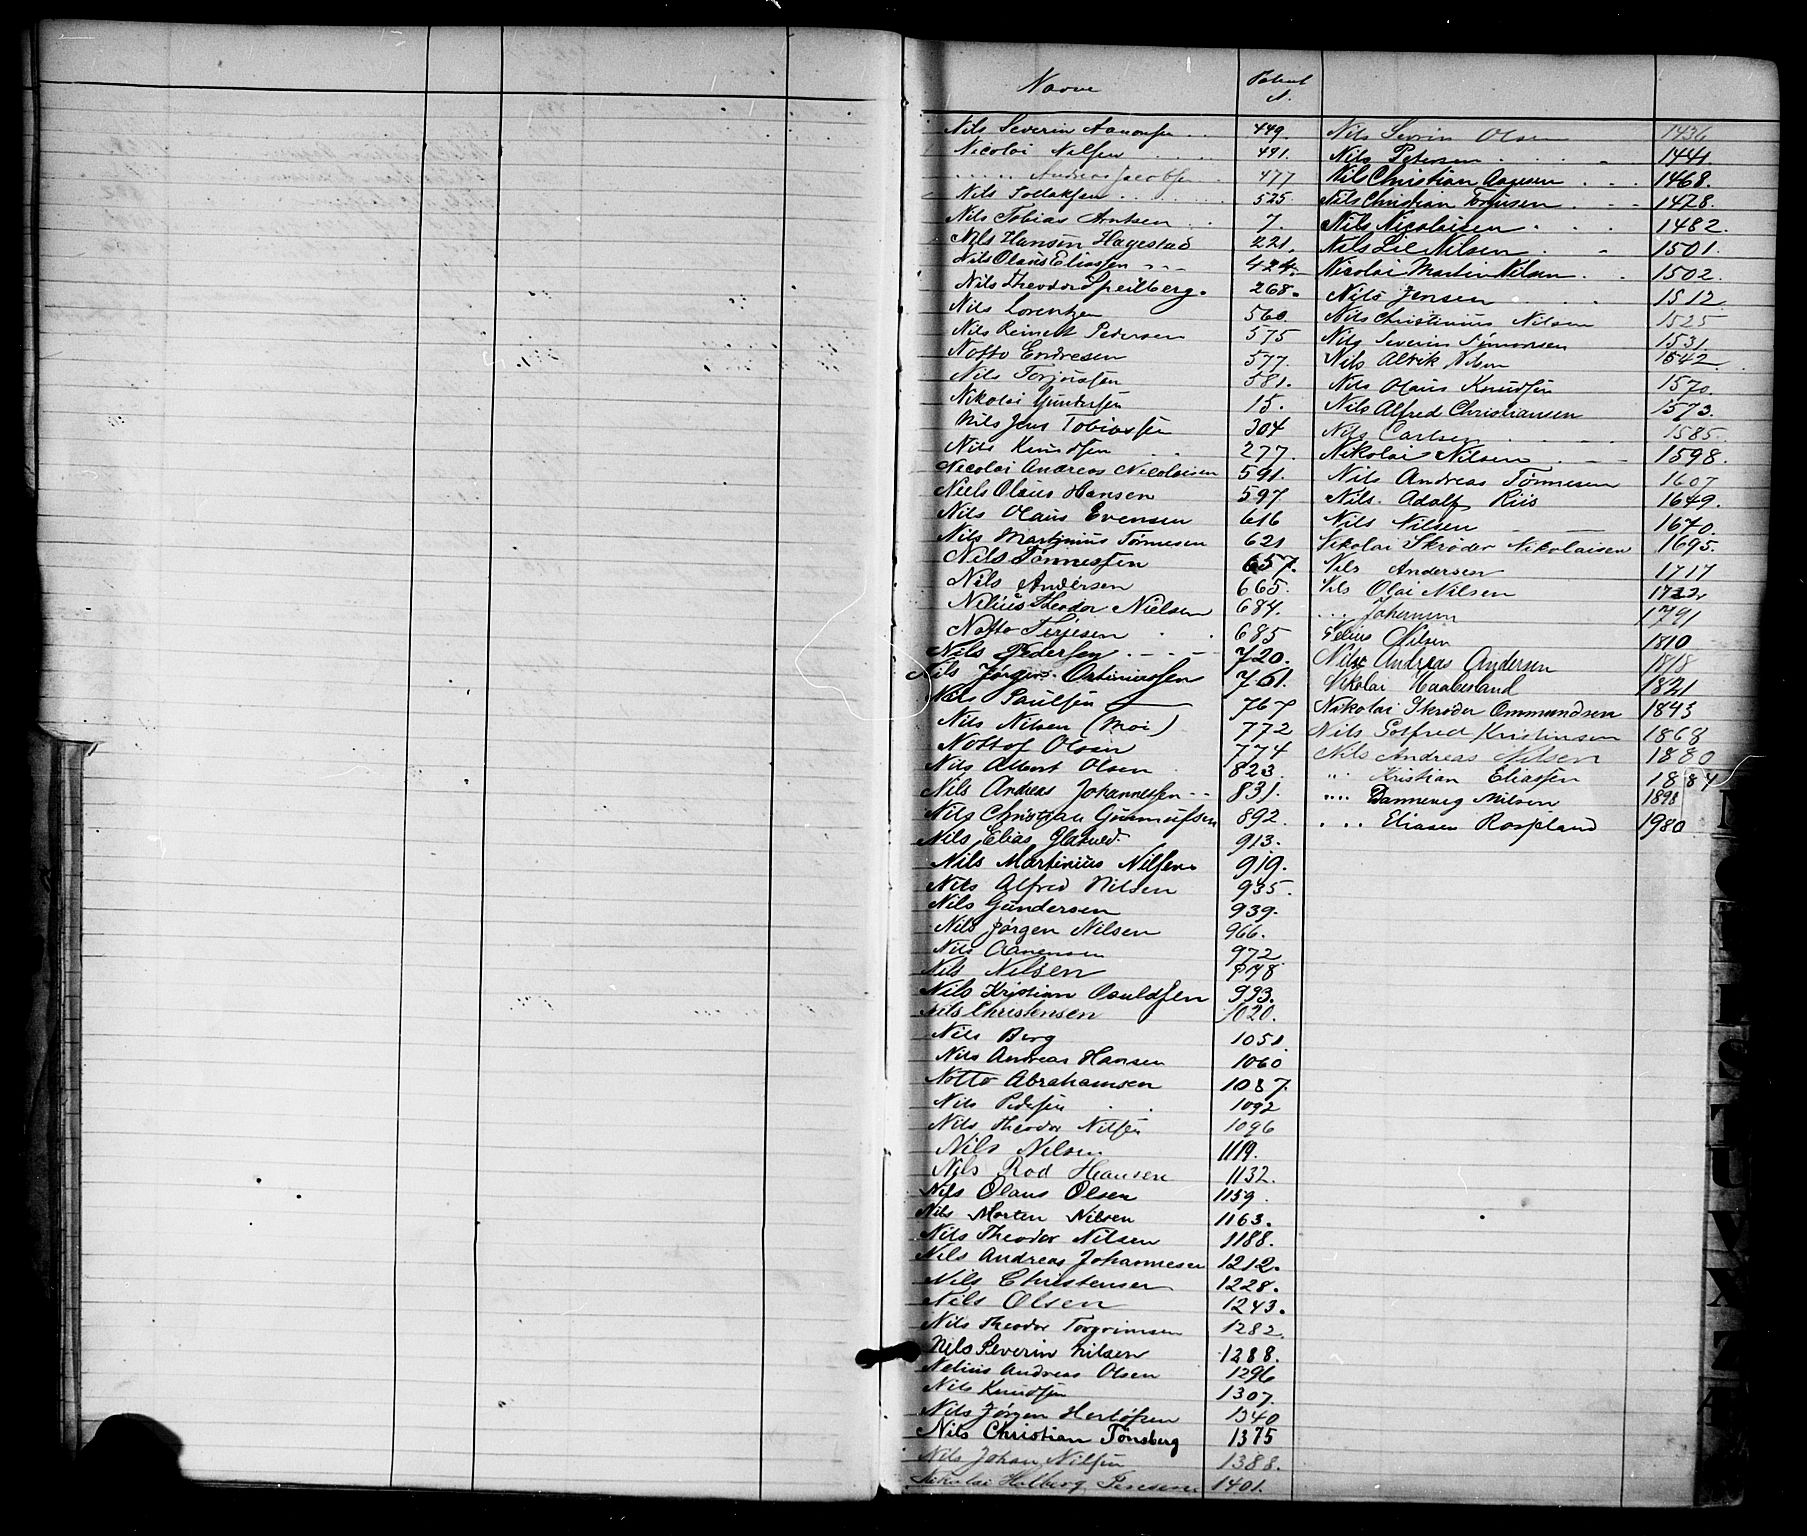 Navne
Patent
N.
Nils Severin Aanonsen 449.
Nicolai Nilsen 491.
" Andreas Jacobsen 477
Nils Tollaksen 525
Nils Tobias Antsen 7.
Nils Hansen Hagestad 221.
Nils Olaus Eliassen 424.
Nils Theodor Speilberg. 268.
Nils Lorentzen 560.
Nils Reinert Pedersen 575
Notto Endresen 577.
Nils Torjussen 581.
Nikolai Gundersen 15.
Nils Jens Tobiassen 304
Nils Knudsen 277.
Nicolai Andreas Nicolaisen 591.
Niels Olaus Hansen 597
Nils Olaus Evensen 616
Nils Martinius Tønnesen 621
Nils Tønnessen 657.
Nils Andersen 665.
Nelius Theodor Nielsen 684.
Notto Terjesen 685
Nils Pedersen 720.
Nils Jørgen 761.
Nils Paulsen 767
Nils Nilsen (Moi) 772
Nottof Olsen 774
Nils Albert Olsen 823
Nils Andreas Johannessen 831.
Nils Christian 892.
Nils Elias 913.
Nils Martinius Nilsen 919.
Nils Alfred Nilsen 935.
Nils Gundersen 939.
Nils Jørgen Nilsen 966.
Nils Aanensen 972
Nils Nilsen
Nils Kristian Osuldsen 993.
Nils Christensen 1020.
Nils Berg 1051
Nils Andreas Hansen 1060
Notto Abrahamsen 1087.
Nils Pedersen 1092
Nils Theodor Nilsen 1096
Nils Nilsen 1119.
Nils Rod Hansen 1132.
Nils Olaus Olsen 1159.
Nils Morten Nilsen 1163.
Nils Theodor Nilsen 1188.
Nils Andreas Johannesen 1212.
Nils Christensen 1228.
Nils Olsen 1243.
Nils Theodor Torgrimsen 1282.
Nils Severin Nilsen 1288.
Nelius Andreas Olsen 1296
Nils Knudsen 1307.
Nils Jørgen Herlofsen 1340
Nils Christian Tønsberg 1375
Nils Johan Nilsen 1388.
Nikolai Holberg 1401.
Nils Sevrin Olsen 1436
Nils Petersen 1441.
Nils Christian Aagesen 1468.
Nils Christian Torjusen 1478.
Nils Nicolaisen 1482.
Nils Lie Nilsen 1501.
Nicolai Martin Nilsen 1502.
Nils Jensen 1512
Nils Christinius Nilsen 1525
Nils Severin Simonsen 1531.
Nils Alvik Nilsen 1542
Nils Olaus Knudsen 1570.
Nils Alfred Christiansen 1573.
Nils Carlsen 1585.
Nikolai Nilsen 1598.
Nils Andreas Tønnesen 1607
Nils Adolf Riis 1649.
Nils Nilsen 1670.
Nikolai Skrøder Nikolaisen 1695.
Nils Andersen 1717
Nils Olai Nilsen 1722
" Johansen 1791
Nelius Nilsen 1810
Nils Andreas Andersen 1818
Nikolai Haabesland 1821
Nikolai Skrøder Ommundsen 1843
Nils Gotfred Kristinsen 1868
Nils Andreas Nilsen 1880
" Kristian Eliassen 1884
" Dannevig Nilsen 1898
" Eliasen Rospland 1980
S
T
U
V
X
Z